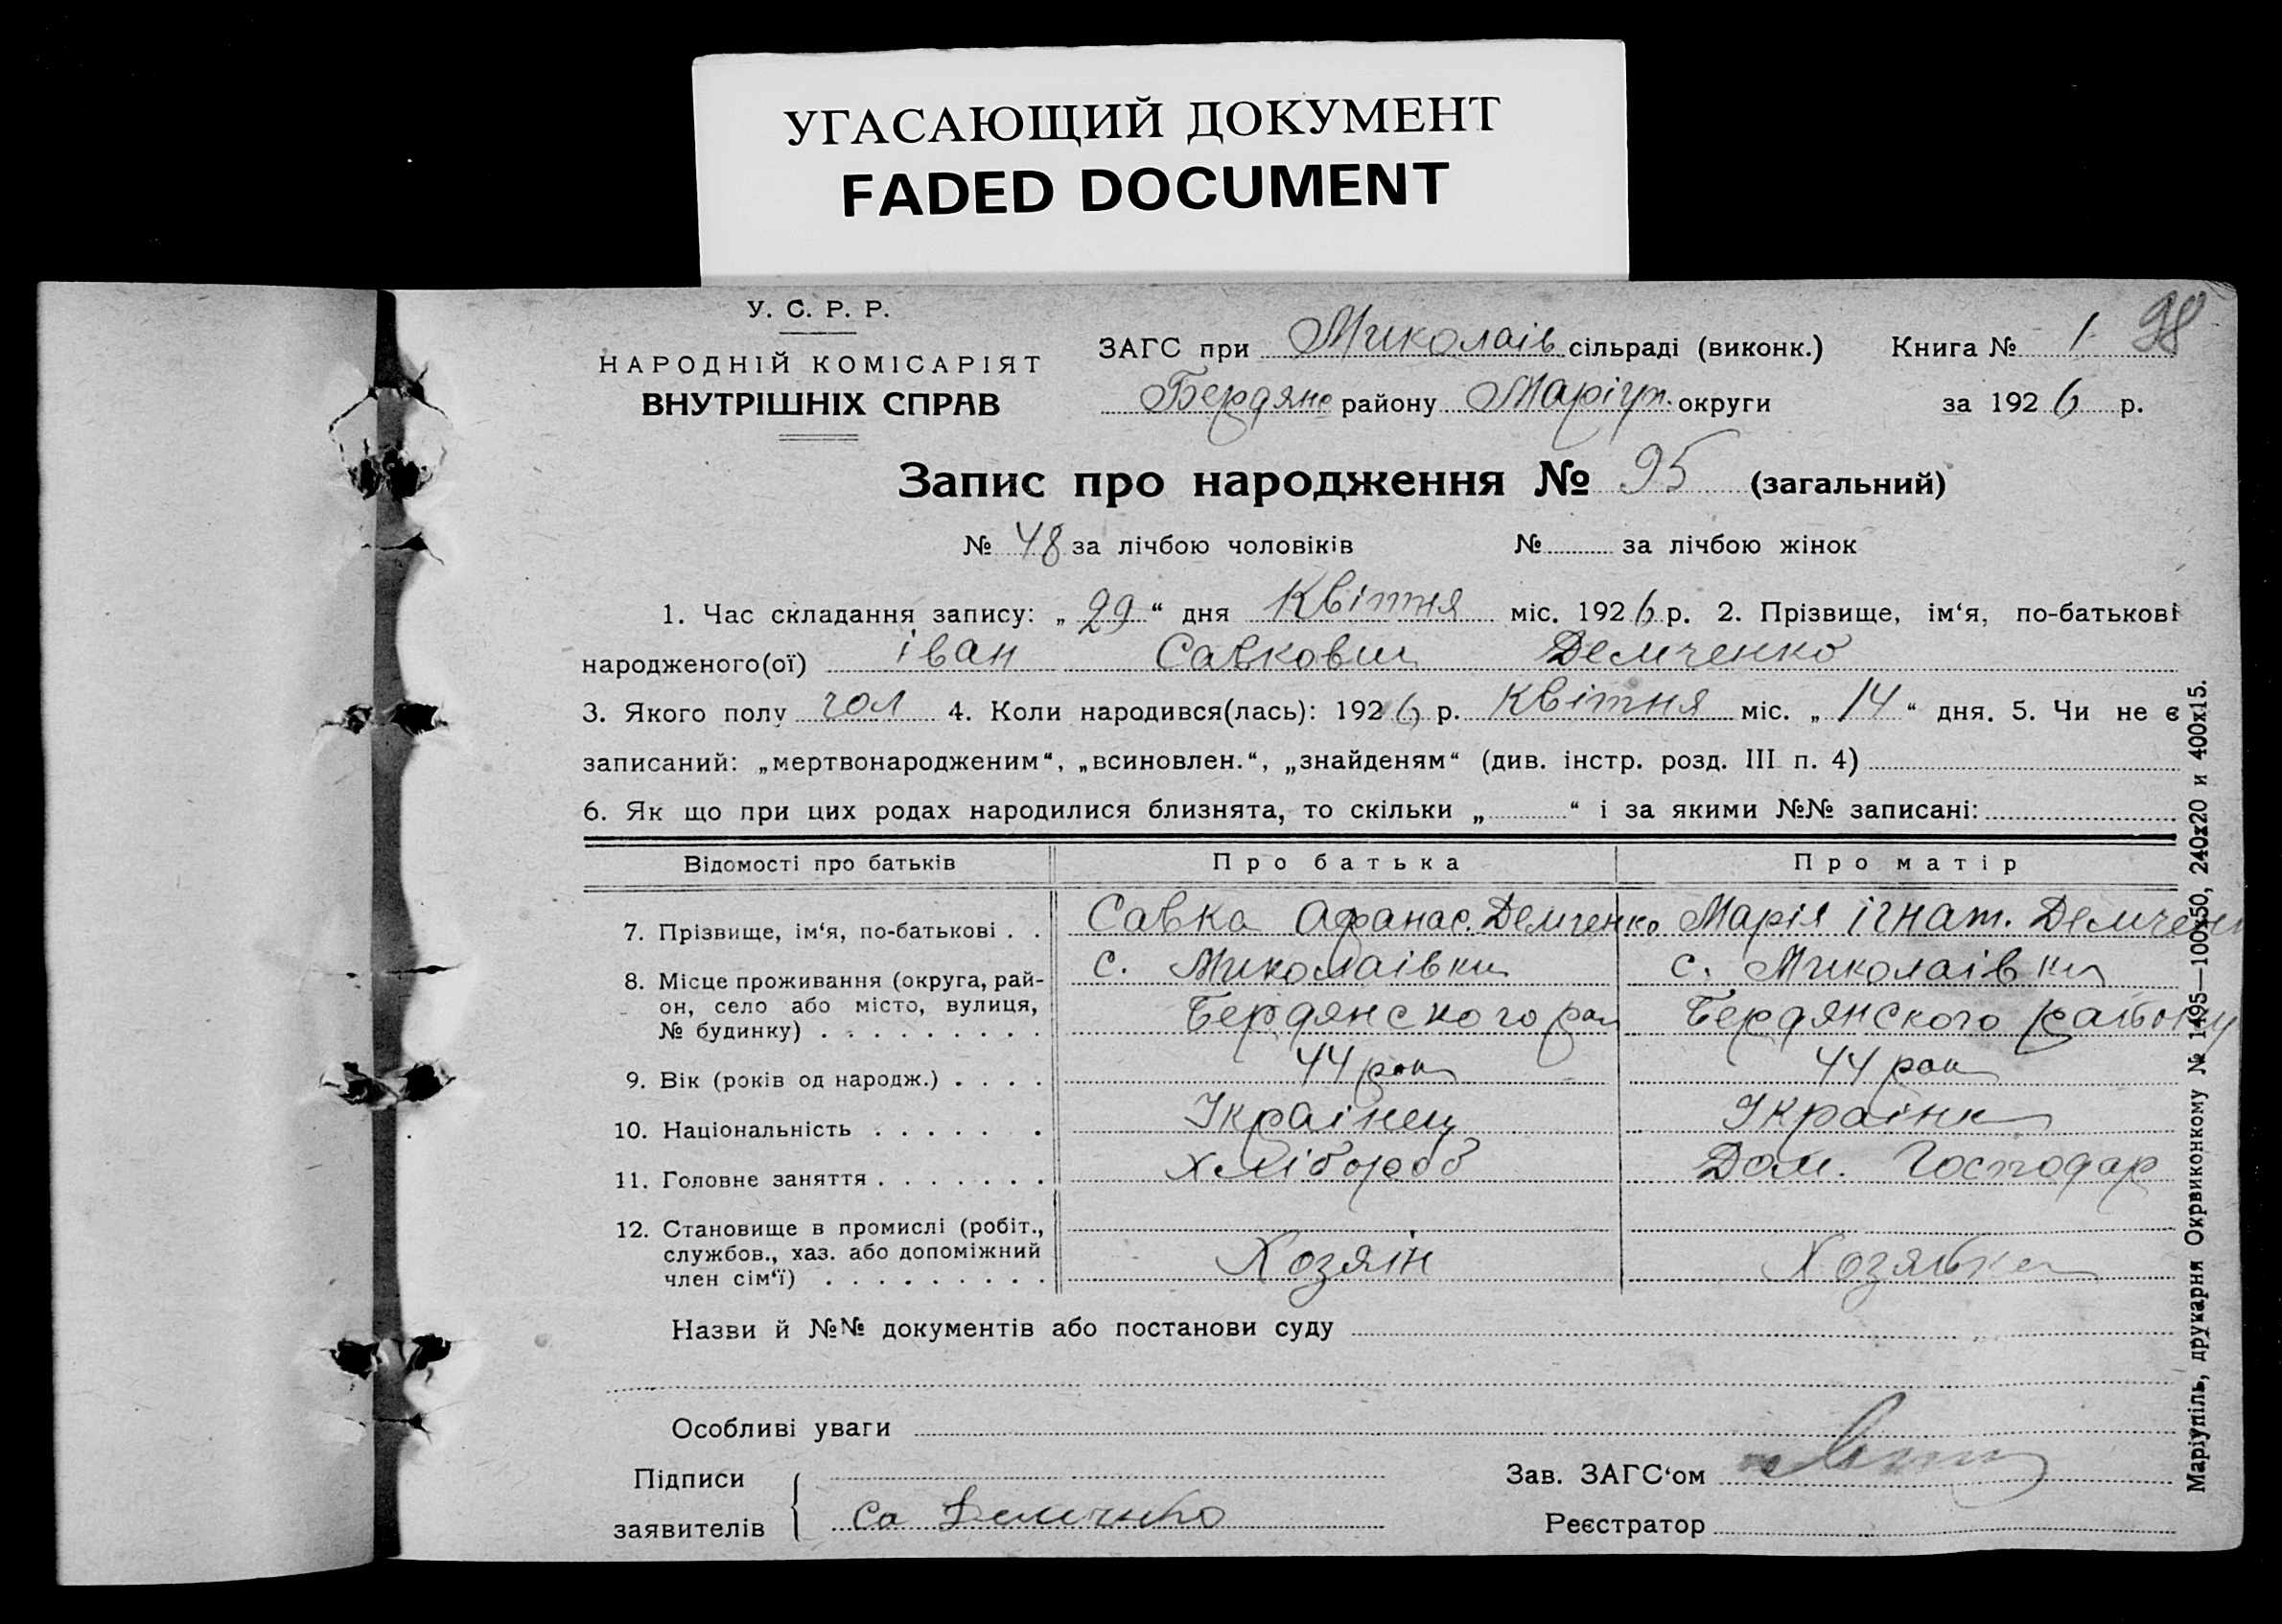 УГАСАЮЩИЙ ДОКУМЕНТ
FADED DOCUMENT
У. С. Р. Р.
НАРОДНІЙ КОМІСАРІЯТ
ВНУТРІШНІХ СПРАВ
ЗАГС при Миколаів сільраді (виконк.) Книга № 1 98
Бердянс району Маріуп. округи за 1926 р.
Запис про народження № 95 (загальний)
№ 48 за лічбою чоловіків № за лічбою жінок
1. Час складання запису: „29“ дня Квітня міс. 1926 р. 2. Прізвище, ім‘я, по-батькові
народженого(ої) іван Савкович Демченко
3. Якого полу чол 4. Коли народився(лась): 1926 р. Квітня міс. „14“ дня. 5. Чи не є
записаний: „мертвонародженим“, „всиновлен.“, „знайденям“ (див. інстр. розд. III п. 4)
6. Як що при цих родах народилися близнята, то скільки „ “ і за якими №№ записані:
Відомості про батьків Про батька Про матір
7. Прізвище, ім‘я, по-батькові . . Савка Афанас. Демченко Марія ігнат. Демченк
8. Місце проживання (округа, рай- с. Миколаівки с. Миколаівки
он, село або місто, вулиця,
№ будинку) . . . . . . . . . Бердянского рай Бердянского району
9. Вік (років од народж.) . . . . 44 роки 44 роки
10. Національність . . . . . . . Українец Українка
11. Головне заняття . . . . . . . хлібороб Дом. Господар
12. Становище в промислі (робіт.,
службов., хаз. або допоміжний
член сім‘ї) . . . . . . . . . Хозяін Хозяйка
Назви й №№ документів або постанови суду
Особливі уваги
Підписи Зав. ЗАГС‘ом
заявителів Са Демченко Реєстратор
Маріупіль, друкарня Окрвиконкому № 1495—100х50, 240х20 и 400х15.